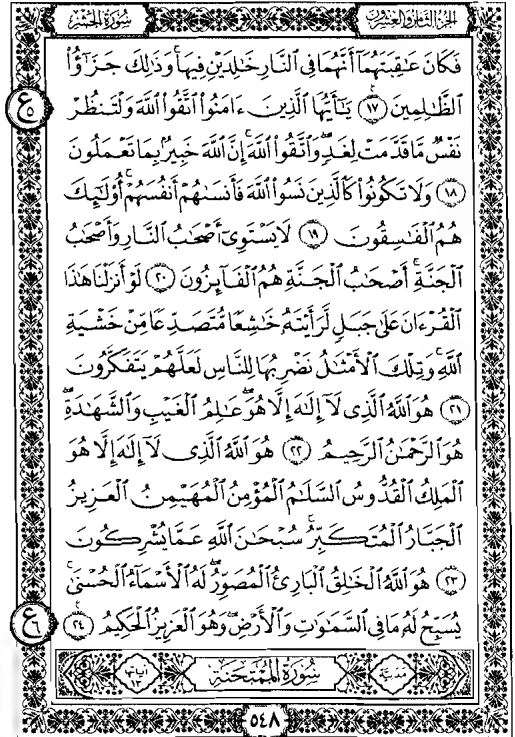 الجزء الثامن والعشرون
سورة الحشر
فَكَانَ عَٰقِبَتَهُمَآ أَنَّهُمَا فِى ٱلنَّارِ خَٰلِدَيْنِ فِيهَا ۚ وَذَٰلِكَ جَزَٰٓؤُا۟
ٱلظَّٰلِمِينَ ١٧ يَٰٓأَيُّهَا ٱلَّذِينَ ءَامَنُوا۟ ٱتَّقُوا۟ ٱللَّهَ وَلْتَنظُرْ
ع ٥
نَفْسٌ مَّا قَدَّمَتْ لِغَدٍ ۖ وَٱتَّقُوا۟ ٱللَّهَ ۚ إِنَّ ٱللَّهَ خَبِيرٌۢ بِمَا تَعْمَلُونَ
١٨ وَلَا تَكُونُوا۟ كَٱلَّذِينَ نَسُوا۟ ٱللَّهَ فَأَنسَىٰهُمْ أَنفُسَهُمْ ۚ أُو۟لَٰٓئِكَ
هُمُ ٱلْفَٰسِقُونَ ١٩ لَا يَسْتَوِىٓ أَصْحَٰبُ ٱلنَّارِ وَأَصْحَٰبُ
ٱلْجَنَّةِ ۚ أَصْحَٰبُ ٱلْجَنَّةِ هُمُ ٱلْفَآئِزُونَ ٢٠ لَوْ أَنزَلْنَا هَٰذَا
ٱلْقُرْءَانَ عَلَىٰ جَبَلٍ لَّرَأَيْتَهُۥ خَٰشِعًا مُّتَصَدِّعًا مِّنْ خَشْيَةِ
ٱللَّهِ ۚ وَتِلْكَ ٱلْأَمْثَٰلُ نَضْرِبُهَا لِلنَّاسِ لَعَلَّهُمْ يَتَفَكَّرُونَ
٢١ هُوَ ٱللَّهُ ٱلَّذِى لَآ إِلَٰهَ إِلَّا هُوَ ۖ عَٰلِمُ ٱلْغَيْبِ وَٱلشَّهَٰدَةِ ۖ
هُوَ ٱلرَّحْمَٰنُ ٱلرَّحِيمُ ٢٢ هُوَ ٱللَّهُ ٱلَّذِى لَآ إِلَٰهَ إِلَّا هُوَ
ٱلْمَلِكُ ٱلْقُدُّوسُ ٱلسَّلَٰمُ ٱلْمُؤْمِنُ ٱلْمُهَيْمِنُ ٱلْعَزِيزُ
ٱلْجَبَّارُ ٱلْمُتَكَبِّرُ ۚ سُبْحَٰنَ ٱللَّهِ عَمَّا يُشْرِكُونَ
٢٣ هُوَ ٱللَّهُ ٱلْخَٰلِقُ ٱلْبَارِئُ ٱلْمُصَوِّرُ ۖ لَهُ ٱلْأَسْمَآءُ ٱلْحُسْنَىٰ ۚ
يُسَبِّحُ لَهُۥ مَا فِى ٱلسَّمَٰوَٰتِ وَٱلْأَرْضِ ۖ وَهُوَ ٱلْعَزِيزُ ٱلْحَكِيمُ ٢٤
ع ٦
مدنية
سورة الممتحنة
آياتها ١٣
٥٤٨